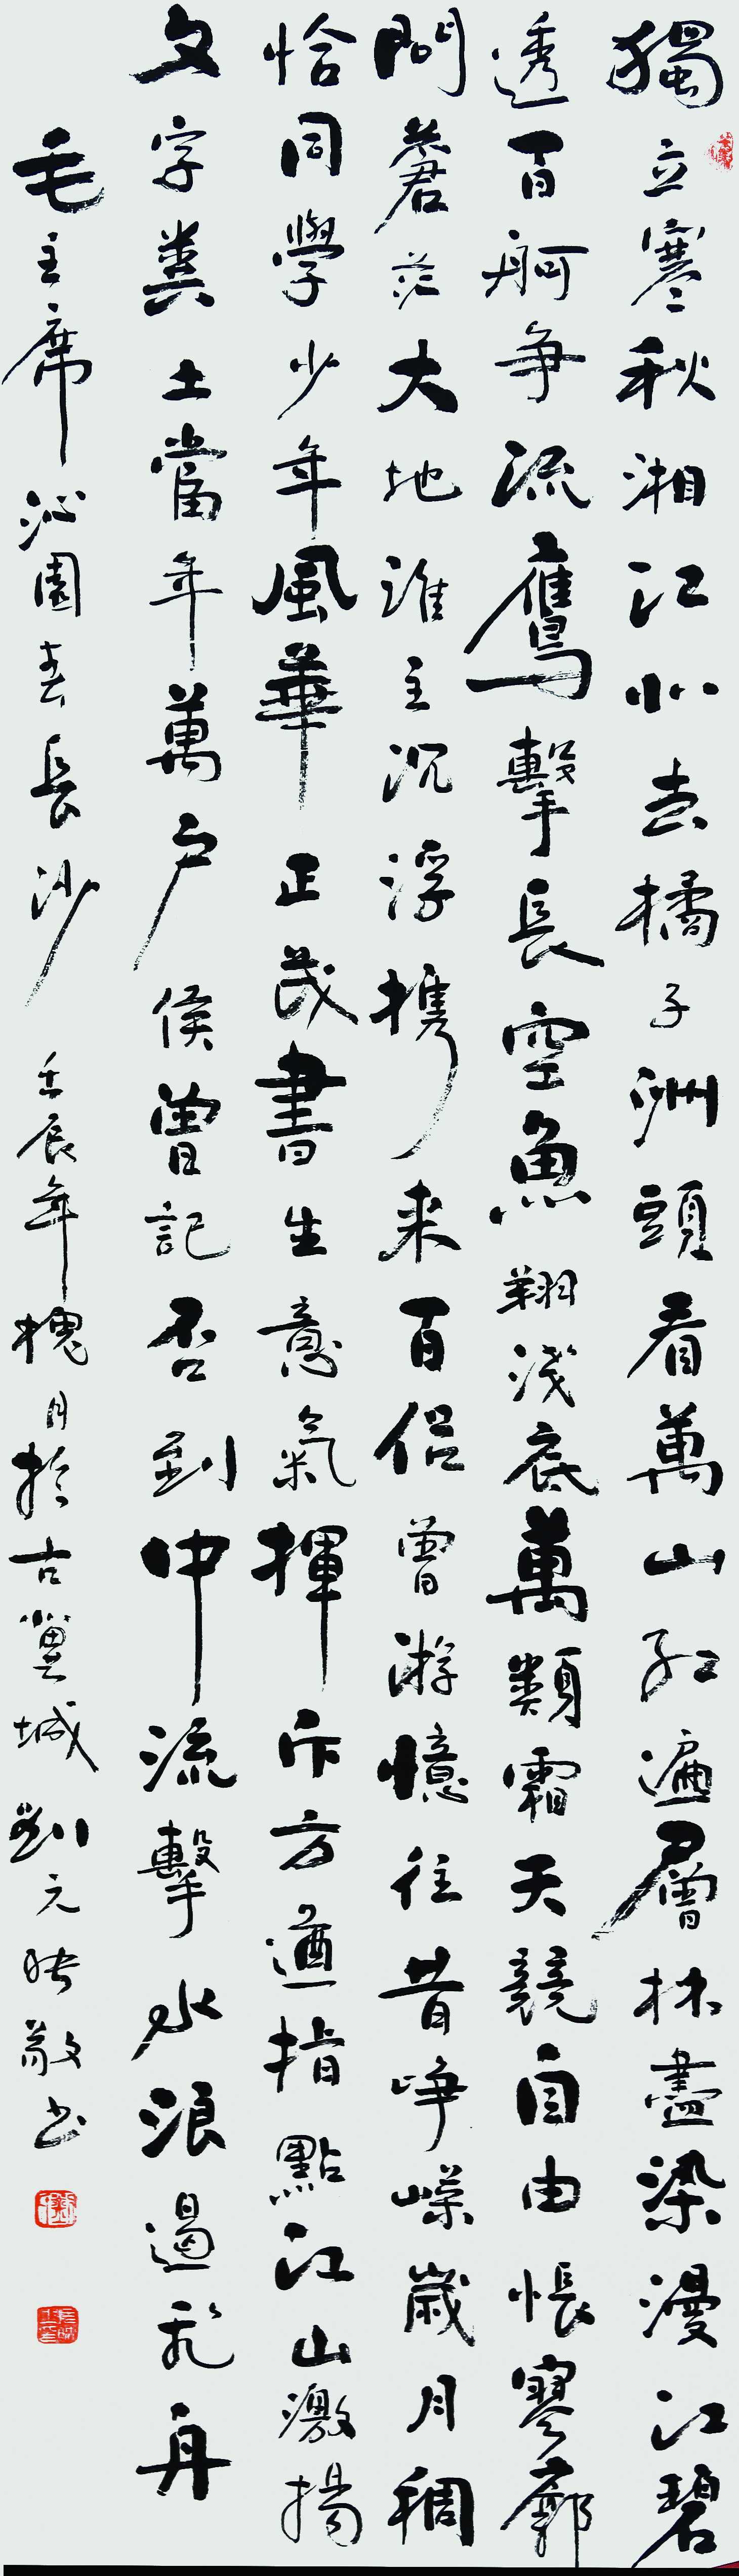 獨立寒秋湘江北去橘子洲頭看萬山紅遍層林盡染漫江碧
透百舸争流鷹擊長空魚翔淺底萬類霜天競自由悵寥廓
問蒼茫大地誰主沉浮携来百侣曾游憶往昔崢嶸歲月稠
恰同學少年風華正茂書生意氣揮斥方遒指點江山激揚
文字糞土當年萬户侯曾記否到中流擊水浪遏飛舟
毛主席沁園春長沙 壬辰年槐月於古冀城劉元敬书